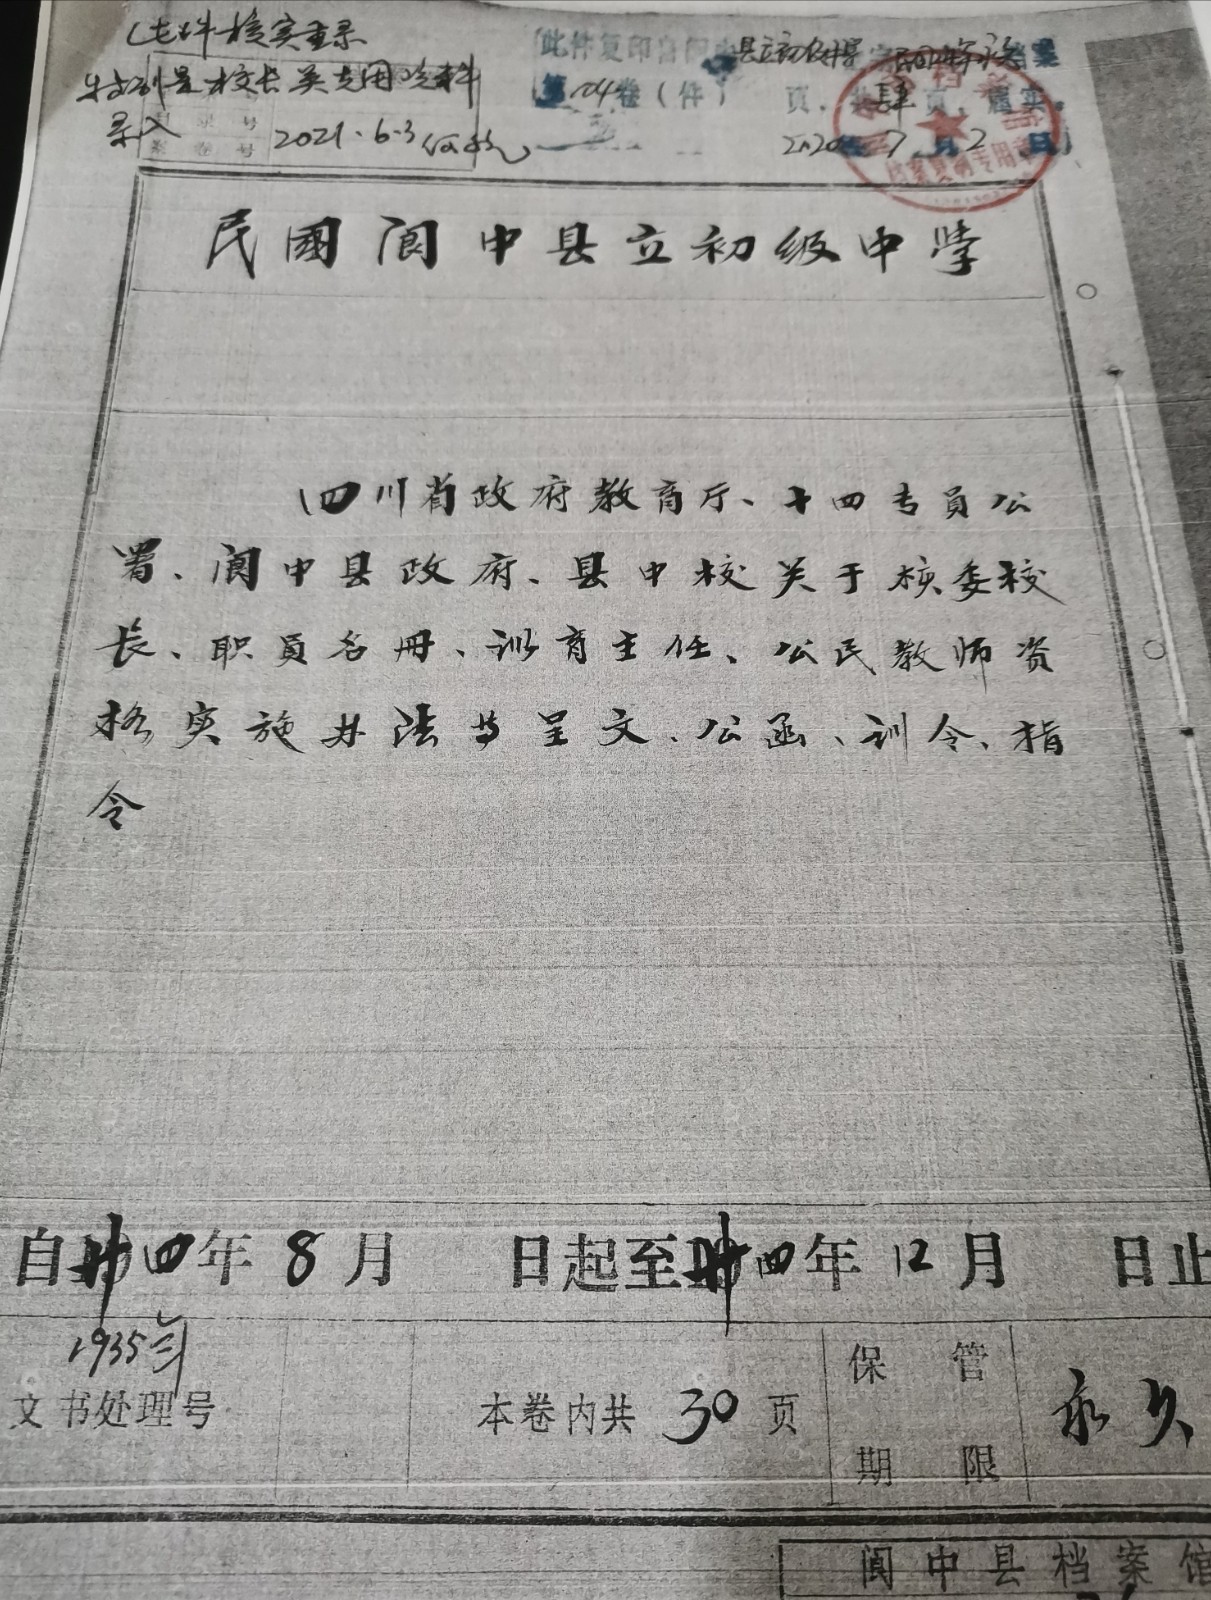 此件核实重录
此件复印自阆
县立初级中学
档案
第104卷（件） 页，共肆页，属实。
特别是校长吴专用资料
录入
案卷号
2021.6.3
2020年7月2日
民國阆中县立初级中学
四川省政府教育厅、十四专员公
署、阆中县政府、县中校关于核委校
长、职员名册、训育主任、公民教师资
格实施办法等呈文、公函、训令、指
令
自廿四年8月 日起至廿四年12月 日止
1935年
文书处理号
本卷内共30页
保管
期限
永久
阆中县档案馆